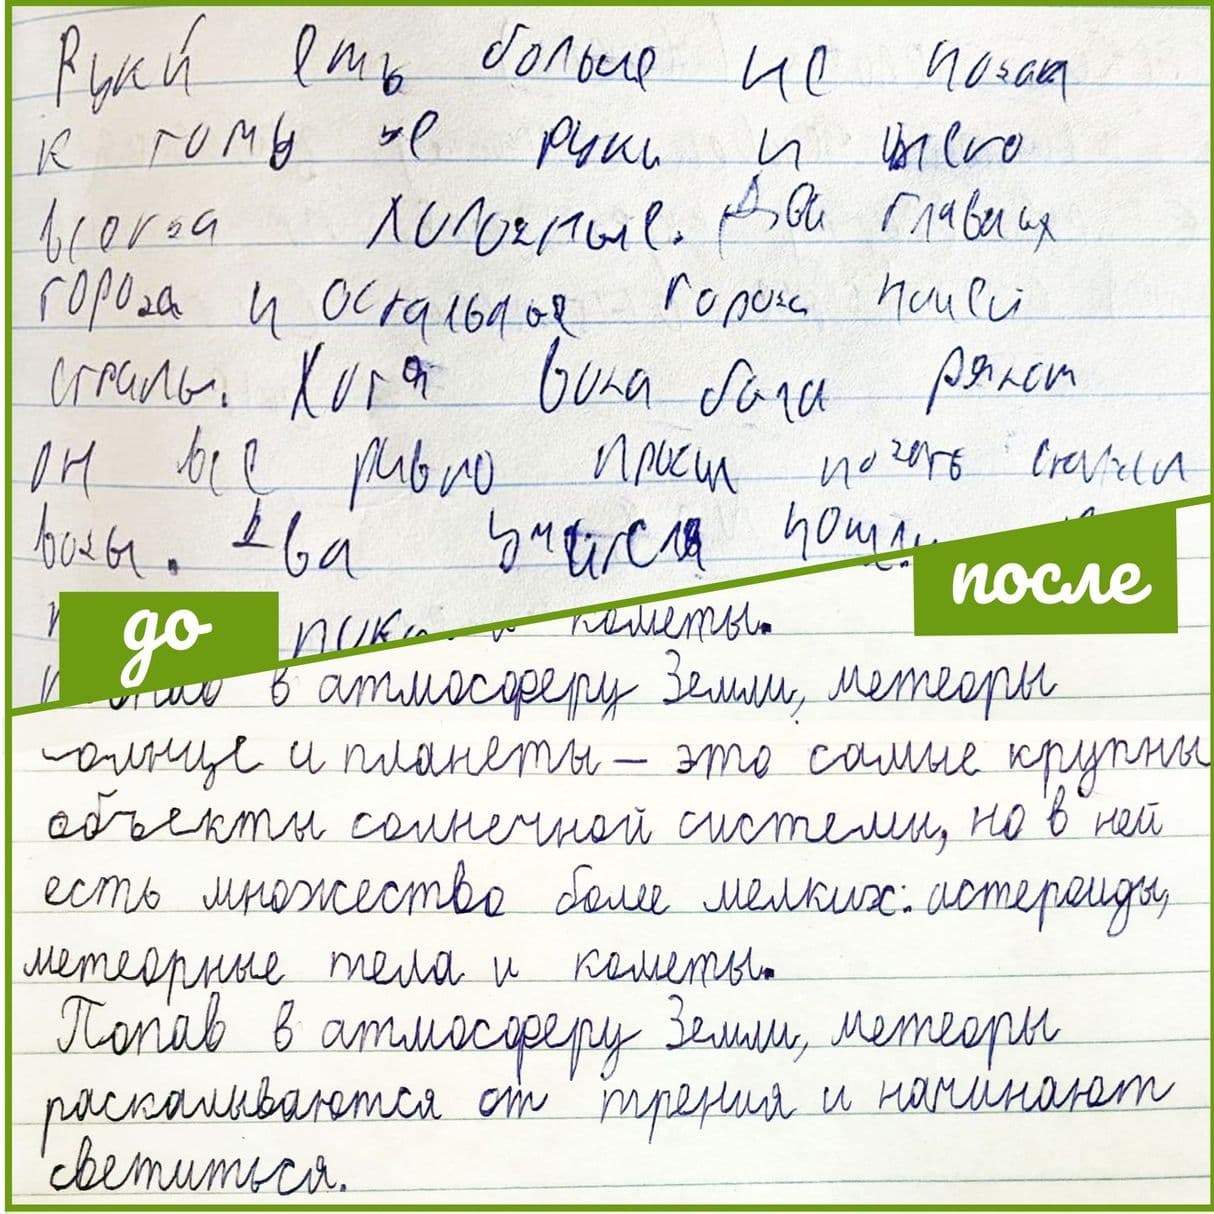 Руки есть больше не
к тому же руки и
всегда холодные. Два главных
города и остальные города нашей
страны. Хотя вода была рядом
он всё равно просил подать стакан
воды. Два пошли
до
после
кометы.
в атмосферу Земли, метеоры
и планеты – это самые крупны
объекты солнечной системы, но в ней
есть множество более мелких: астероиды,
метеорные тела и кометы.
Попав в атмосферу Земли, метеоры
раскалываются от трения и начинают
светиться.